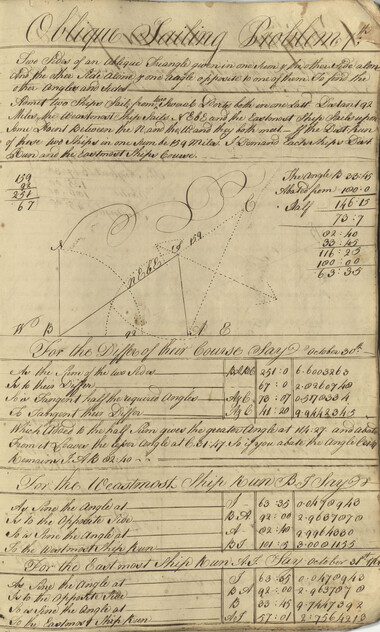 Oblique Sailing Problem
Two Sides of an Oblique Triangle given in one Sum & the other Side alone
And the other Side alone & one Angle opposite to one of them To find the
other Angles and Sides
Admit two Ships Sails from two Ports both in one Lat. Distant 92
Miles, the Weastmost Ship Sails NEbE and the Eastmost Ship Sails upon
Some Point Between the N. and the W. and they both meet. If the Dist Run
of these two Ships in one Sum be 159 Miles. I Demand Each Ships Dist
Run and the Eastmost Ships Course.
159
92
251
67
The Angle B 33:45
Abated from 180:0
Half 146:15
73:7
82:40
33:45
116:25
180:00
63:35
C
N
159
NEbE
W B 92 A E
For the Diffce of their Course Say October 30th
As the Sum of the two Sides 251:0
Is to their Differ 67:0 2.8260748
So is Tangent half the required Angles
To Tangent their Differ 41:20 9.9442343
Which Added to the half Sum gives the greater Angle at 114:27 and abate
From it Leaves the lesser Angle at C 31:47 So if you abate the Angle
Remains A B 82:40
For the Weastmost Ship Run BJ Say
As Sine the Angle at J 63:35 0.0478943
Is to the Opposite Side BA 92:00 2.9637878
So is Sine the Angle at A 82:40 9.9964330
To the Westmost Ship Run BJ 101:5 3.0081155
For the Eastmost Ship Run AJ Say October 31st
As Sine the Angle at J 63:35 0.0478943
Is to the Opposite Side BA 92:00 2.9637878
So is Sine the Angle at B 33:45 9.7447392
To the Eastmost Ship Run AJ 57:01 2.7564213